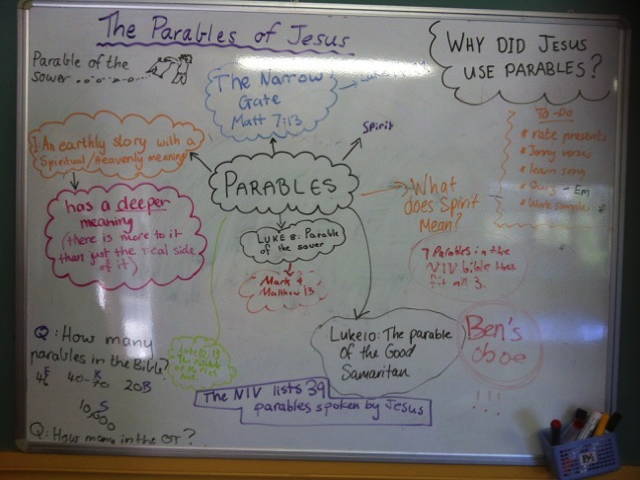 The Parables of Jesus
Parable of the
sower
The Narrow
Gate
Matt 7:13
WHY DID JESUS
USE PARABLES?
Spirit
TO-DO
* rate presents
* learn song
* Quiz - Em
An earthly story with a
Spiritual/Heavenly meaning
PARABLES
What
does Spirit
Mean?
has a deeper
meaning
(there is more to it
than just the real side
of it)
LUKE 8: Parable
of the sower
Mark 4
Matthew 13
7 Parables in the
NIV bible
all 3.
Luke10: The parable
of the Good
Samaritan
Ben's
oboe
!!!
Q: How many
parables in the Bible?
40-70 20B
10,000
The NIV lists 39
parables spoken by Jesus
Q: How many in the OT?